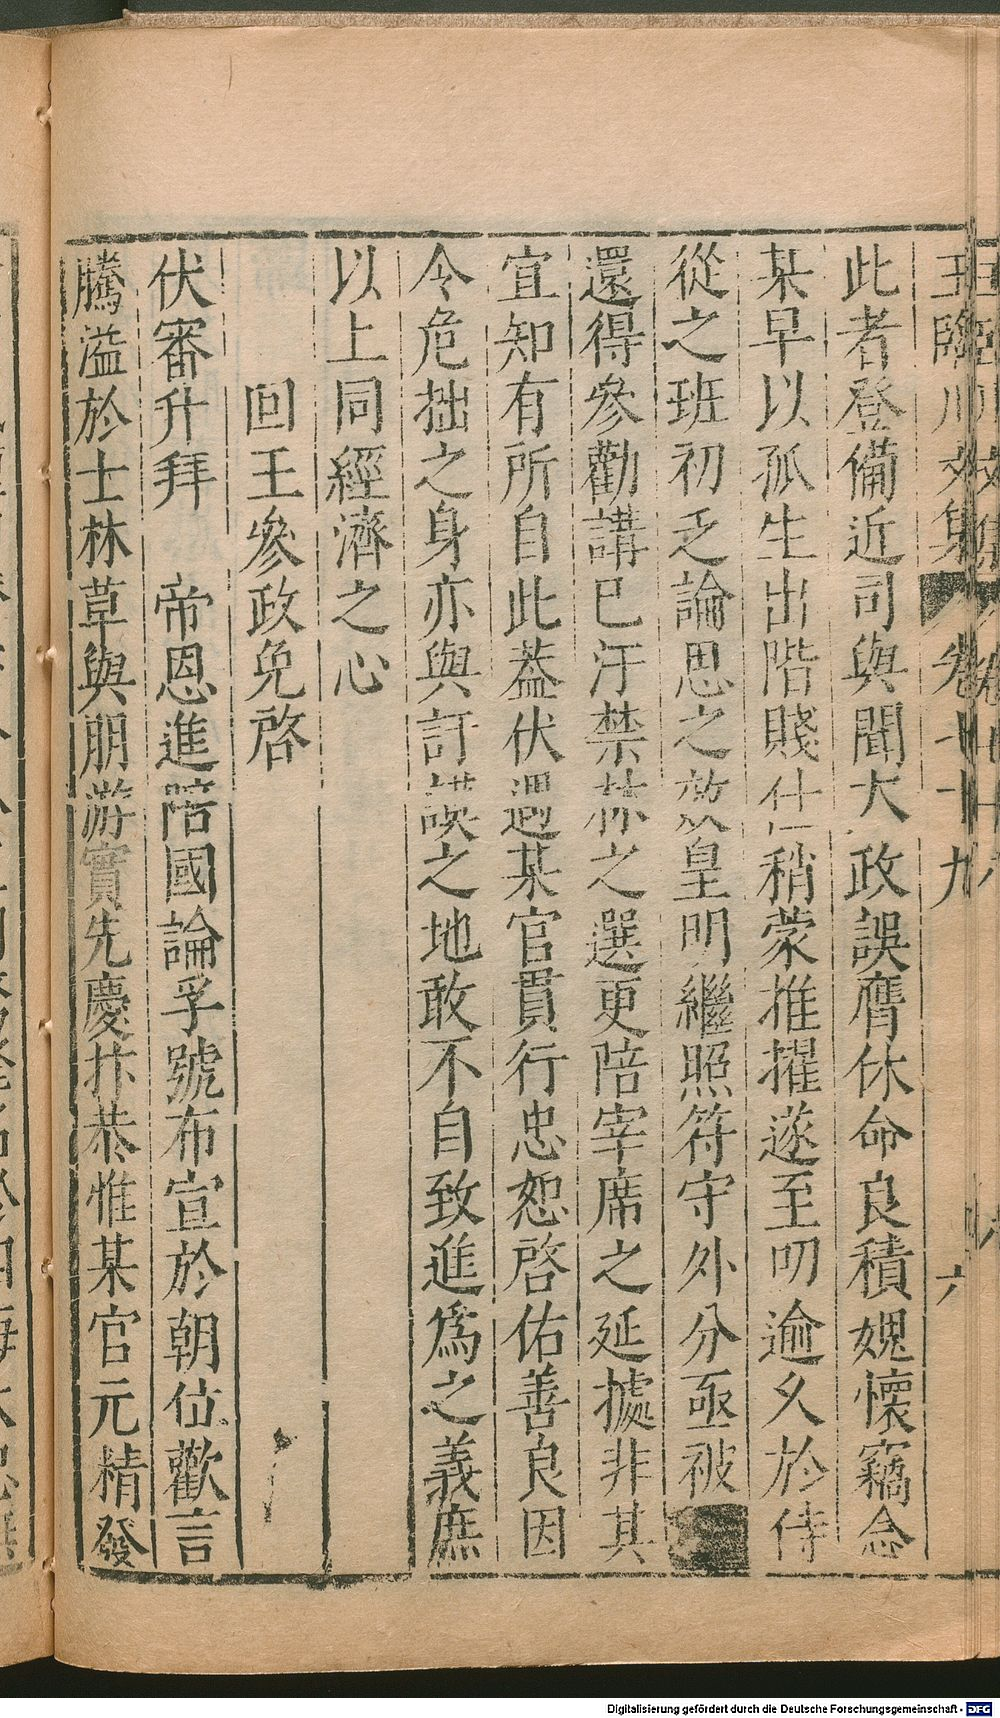 王臨川文集 卷七十九 六
此者登備近司與聞大政誤膺休命良積媿懷竊念
某早以孤生出階賤仕稍蒙推擢遂至叨逾久於侍
從之班初乏論思之效皇明繼照符守外分亟被
還得參勸講已汙禁林之選更陪宰席之延據非其
宜知有所自此蓋伏遇某官貫行忠恕啓佑善良因
令危拙之身亦與訏謨之地敢不自致進爲之義庶
以上同經濟之心
回王參政免啓
伏審升拜 帝恩進陪國論孚號布宣於朝位歡言
騰溢於士林草與朋游實先慶抃恭惟某官元精發
Digitalisierung gefördert durch die Deutsche Forschungsgemeinschaft - DFG